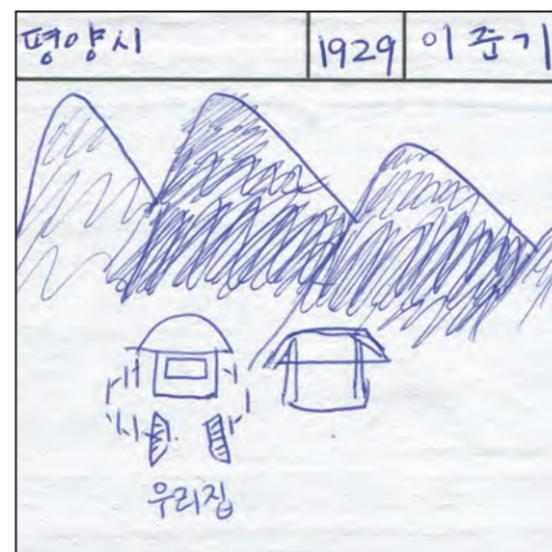 평양시 1929 이준기
우리집